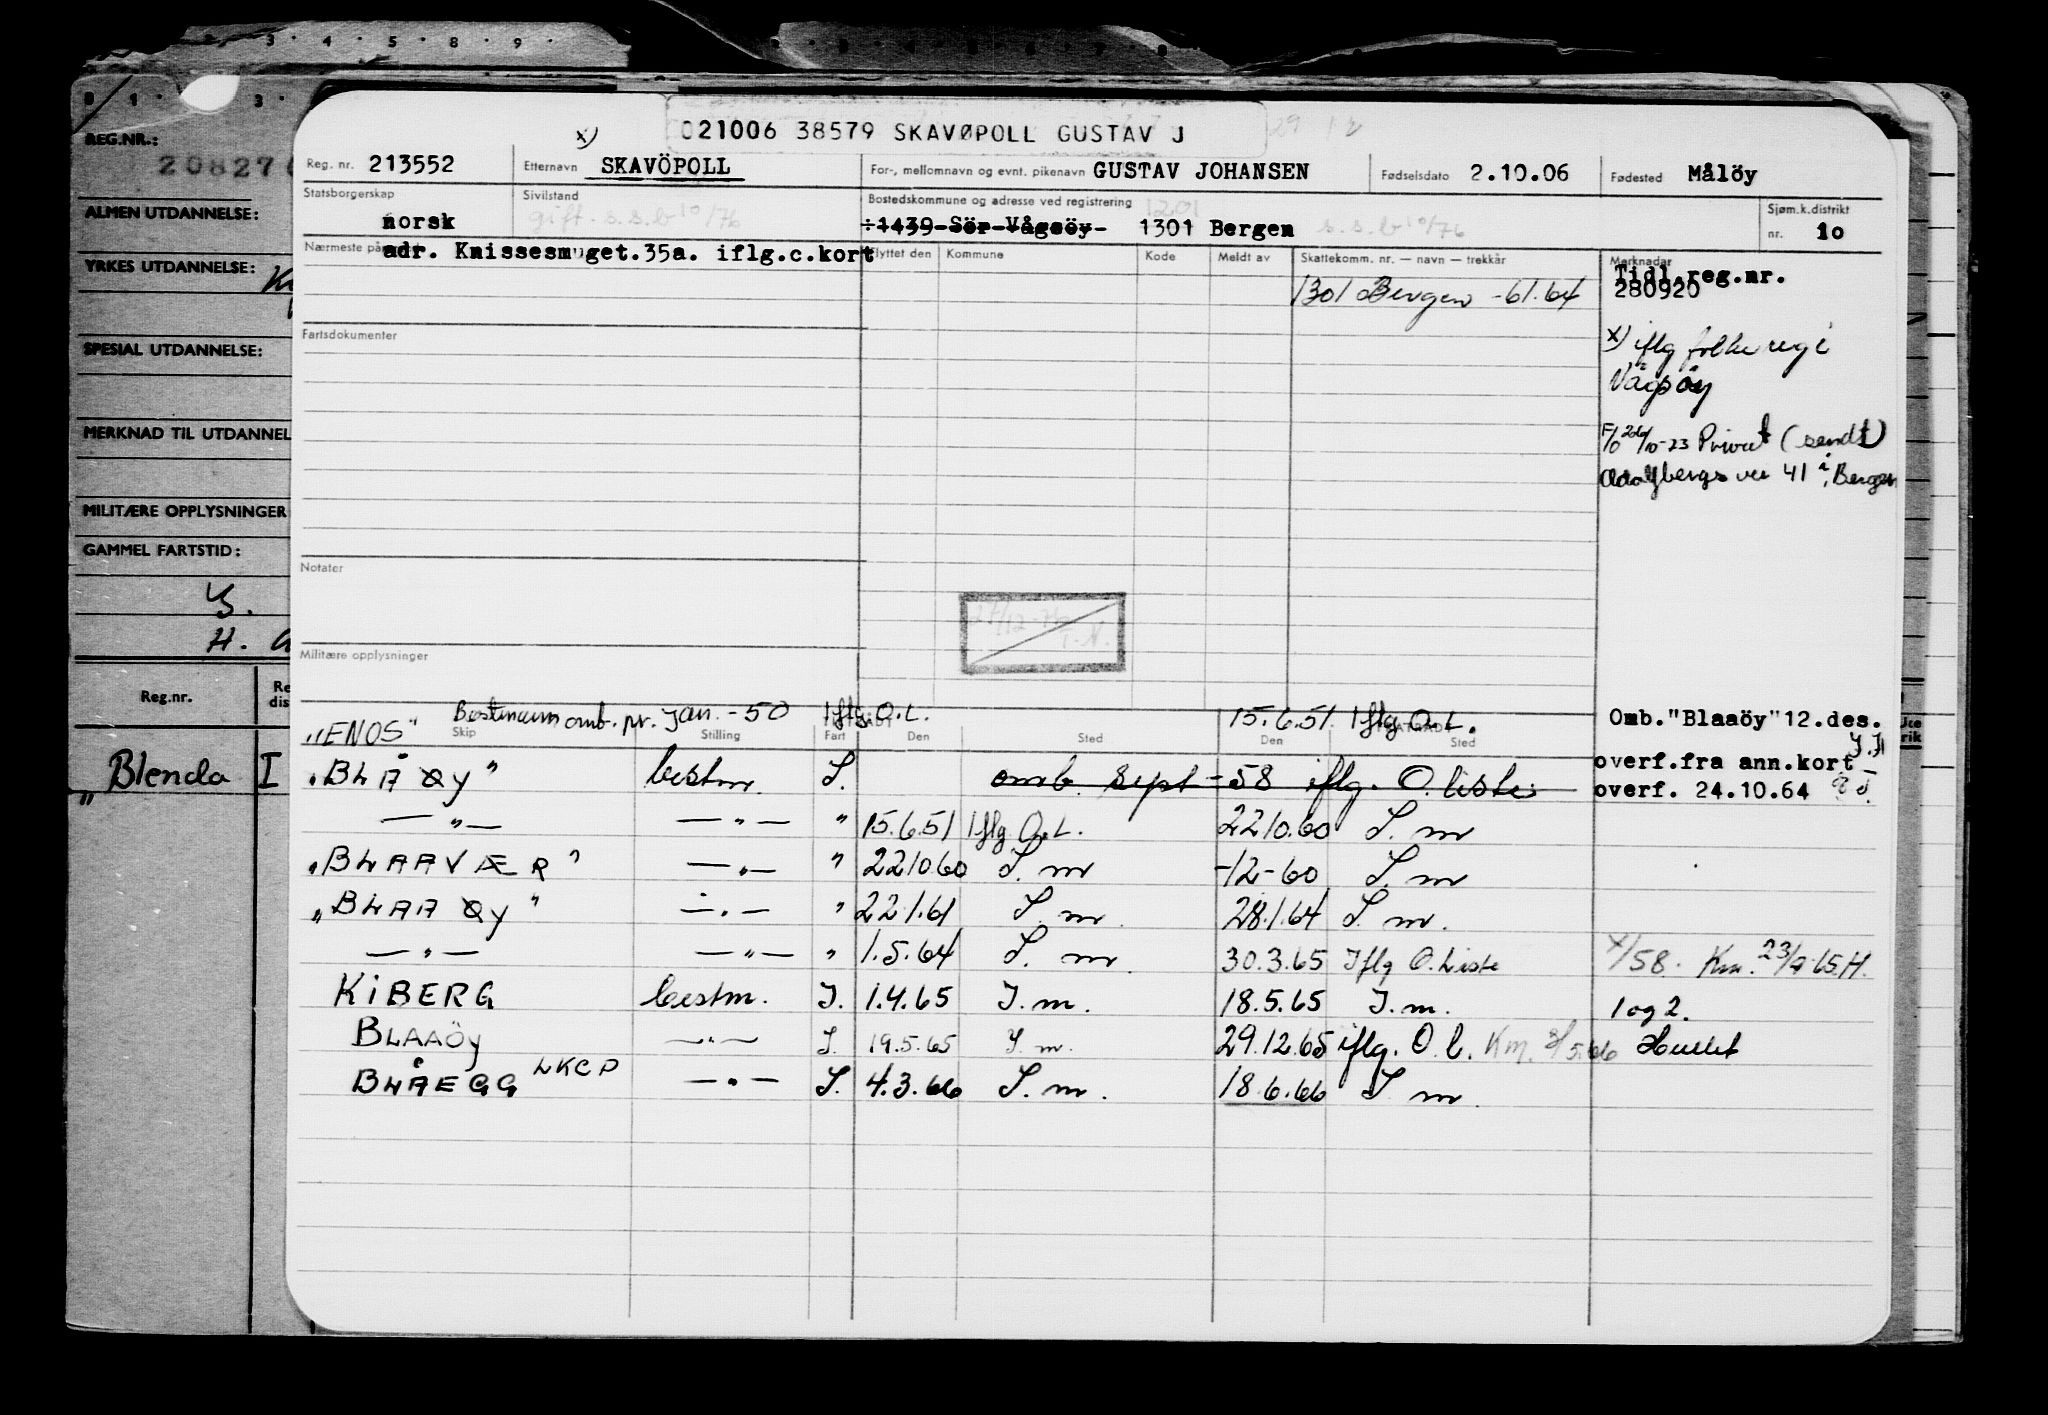 3 · 4 · 5 · 8 · 9 ·
0 1 · 3 ·
REG.NR.:
20827
ALMEN UTDANNELSE:
YRKES UTDANNELSE:
SPESIAL UTDANNELSE:
MERKNAD TIL UTDANNEL
MILITÆRE OPPLYSNINGER
GAMMEL FARTSTID:
H.
Reg.nr.
Re
dis
"Blenda I
x) 021006 38579 SKAVØPOLL GUSTAV J
Reg. nr. 213552 Etternavn SKAVÖPOLL For-, mellomnavn og evnt. pikenavn GUSTAV JOHANSEN Fødselsdato 2.10.06 Fødested Målöy
Statsborgerskap norsk Sivilstand gift - s.s.b 10/76 Bostedskommune og adresse ved registrering 1201
÷1439 Sör-Vågsöy- 1301 Bergen s.s.b 10/76 Sjøm.k.distrikt nr. 10
Nærmeste på adr. Knissesmuget.35a. iflg.c.kort Flyttet den Kommune Kode Meldt av Skattekomm. nr. — navn — trekkår Merknader
Tidl.reg.nr.
1301 Bergen -61.64 280920
Fartsdokumenter
x) iflg folkereg i
Vågsøy
F/o 26/10-23 Privat (sendt)
41 i Bergen
Notater
Militære opplysninger
"ENOS" Bestmann omb. pr. Jan. -50 Iflg O.L. 15.6.51 Iflg O.L. Omb."Blaaöy"12.des.
Skip Stilling Fart Den Sted Den Sted
"BLÅØY" bestm. S. omb. sept -58 iflg. O.liste overf.fra ann.kort
overf. 24.10.64
— " — — " — " 15.6.51 Iflg O.L. 22.10.60 S. m
"BLAAVÆR" — " — " 22.10.60 S. m -12-60 S. m
"BLAAØY" — " — " 22.1.61 S. m 28.1.64 S. m.
— " — — " — " 1.5.64 S. m. 30.3.65 Iflg O.Liste x/58. Km. 23/9.65.H.
KIBERG bestm. I. 1.4.65 I.m. 18.5.65 I.m. 1 og 2.
BLAAÖy — " — S. 19.5.65 S. m. 29.12.65 iflg. O.l. Km.
BLÅEGG LKCP — " — S. 4.3.66 S. m. 18.6.66 S. m.